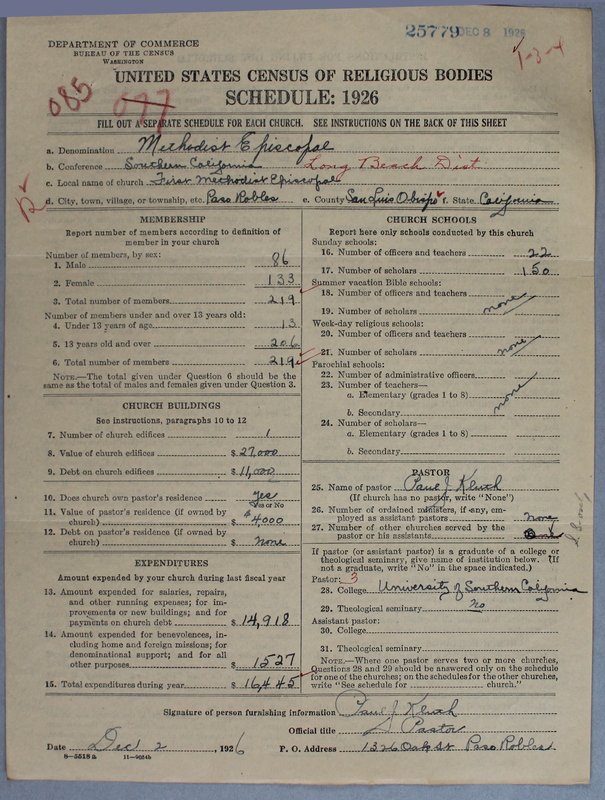 25779 DEC 8 1926
1-3-4
DEPARTMENT OF COMMERCE
BUREAU OF THE CENSUS
WASHINGTON
UNITED STATES CENSUS OF RELIGIOUS BODIES
SCHEDULE: 1926
085
077
FILL OUT A SEPARATE SCHEDULE FOR EACH CHURCH. SEE INSTRUCTIONS ON THE BACK OF THIS SHEET
a. Denomination Methodist Episcopal
b. Conference Southern California Long Beach Dist.
c. Local name of church First Methodist Episcopal
d. City, town, village, or township, etc. Paso Robles e. County San Luis Obispo f. State California
MEMBERSHIP
Report number of members according to definition of
member in your church
Number of members, by sex:
1. Male 86
2. Female 133
3. Total number of members 219
Number of members under and over 13 years old:
4. Under 13 years of age 13
5. 13 years old and over 206
6. Total number of members 219
NOTE.—The total given under Question 6 should be
same as the total of males and females given under Question 3.
CHURCH BUILDINGS
See instructions, paragraphs 10 to 12
7. Number of church edifices 1
8. Value of church edifices $27,000
9. Debt on church edifices $11,000
10. Does church own pastor's residence yes
Yes or No
11. Value of pastor's residence (if owned by
church) $4000
12. Debt on pastor's residence (if owned by
church) $ None
EXPENDITURES
Amount expended by your church during last fiscal year
13. Amount expended for salaries, repairs,
and other running expenses; for im-
provements or new buildings; and for
payments on church debt $14,918
14. Amount expended for benevolences, in-
cluding home and foreign missions; for
denominational support; and for all
other purposes $1527
15. Total expenditures during year $16445
CHURCH SCHOOLS
Report here only schools conducted by this church
Sunday schools:
16. Number of officers and teachers 22
17. Number of scholars 150
Summer vacation Bible schools:
18. Number of officers and teachers
19. Number of scholars none
Week-day religious schools:
20. Number of officers and teachers
21. Number of scholars none
Parochial schools:
22. Number of administrative officers
23. Number of teachers—
a. Elementary (grades 1 to 8) none
b. Secondary
24. Number of scholars—
a. Elementary (grades 1 to 8)
b. Secondary
PASTOR
25. Name of pastor Paul J. Kluth
(If church has no pastor, write "None")
26. Number of ordained ministers, if any, em-
ployed as assistant pastors None
27. Number of other churches served by the
pastor or his assistants
If pastor (or assistant pastor) is a graduate of a college or
theological seminary, give name of institution below. (If
not a graduate, write "No" in the space indicated.)
Pastor: 3
28. College University of Southern California
29. Theological seminary no
Assistant pastor:
30. College
31. Theological seminary
NOTE.—Where one pastor serves two or more churches,
Questions 28 and 29 should be answered only on the schedule
for one of the churches; on the schedules for the other churches,
write "See schedule for church."
Signature of person furnishing information Paul J. Kluth
Official title Pastor
Date Dec 2, 1926 P. O. Address 1326 Oak St Paso Robles
8-5518 a 11-9054b